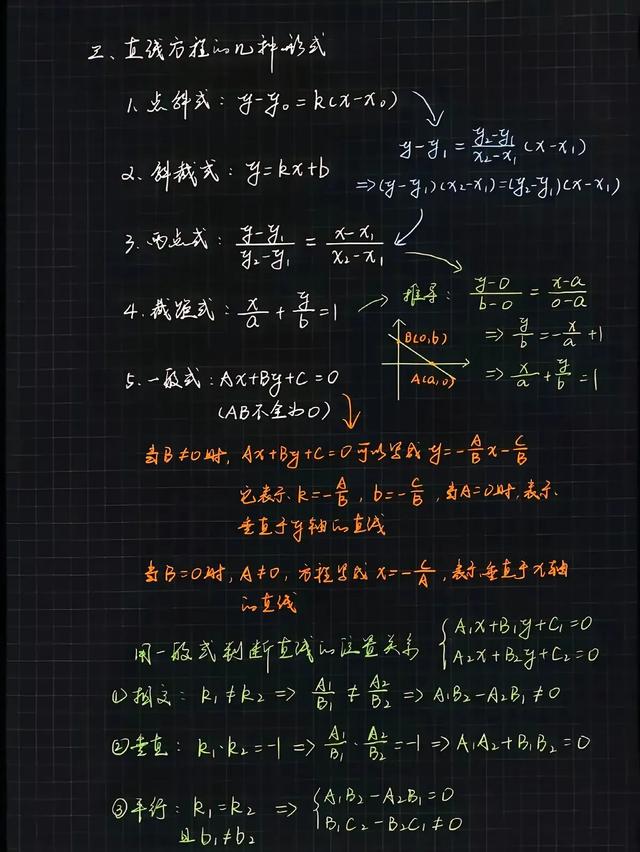 三、直线方程的几种形式
1、点斜式：y-y₀=k(x-x₀)
y-y₁=\frac{y₂-y₁}{x₂-x₁}(x-x₁)
2、斜截式：y=kx+b
=>(y-y₁)(x₂-x₁)=(y₂-y₁)(x-x₁)
3、两点式：\frac{y-y₁}{y₂-y₁}=\frac{x-x₁}{x₂-x₁}
4、截距式：\frac{x}{a}+\frac{y}{b}=1
推导：\frac{y-0}{b-0}=\frac{x-a}{0-a}
=>\frac{y}{b}=-\frac{x}{a}+1
=>\frac{x}{a}+\frac{y}{b}=1
B(0,b)
A(a,0)
5、一般式：Ax+By+C=0
(AB不全为0)
当B≠0时，Ax+By+C=0可以写成y=-\frac{A}{B}x-\frac{C}{B}
它表示k=-\frac{A}{B}，b=-\frac{C}{B}，当A=0时，表示
垂直于y轴的直线
当B=0时，A≠0，方程写成x=-\frac{C}{A}，表示垂直于x轴
的直线
用一般式判断直线的位置关系 {A₁x+B₁y+C₁=0
A₂x+B₂y+C₂=0
①相交：k₁≠k₂=>\frac{A₁}{B₁}≠\frac{A₂}{B₂}=>A₁B₂-A₂B₁≠0
②垂直：k₁·k₂=-1=>\frac{A₁}{B₁}·\frac{A₂}{B₂}=-1=>A₁A₂+B₁B₂=0
③平行：k₁=k₂ => {A₁B₂-A₂B₁=0
且b₁≠b₂ B₁C₂-B₂C₁≠0